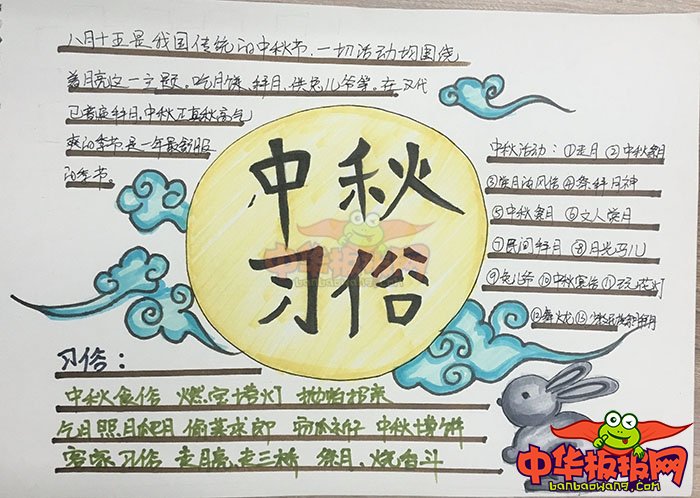 八月十五是我国传统的中秋节,一切活动均围绕
着月亮这一主题。吃月饼、拜月、供兔儿爷等。在汉代
已有夜拜月,中秋正直秋高气
爽的季节是一年最舒服
的季节。
中秋
习俗
中秋活动:①走月 ②中秋祭月
③ 月 风俗 ④祭拜月神
⑤中秋祭月 ⑥文人赏月
⑦民间拜月 ⑧月光马儿
⑨兔儿爷 ⑩中秋宴俗 ⑪玩花灯
⑫舞火龙 ⑬
习俗:
中秋食俗 燃宝塔灯 抛帕招亲
与月照月爬月 偷菜求郎 中秋博饼
客家习俗 走月亮、走三桥 祭月、烧香斗
中华板报网
banbaowang.com
中华板报网
banbaowang.com